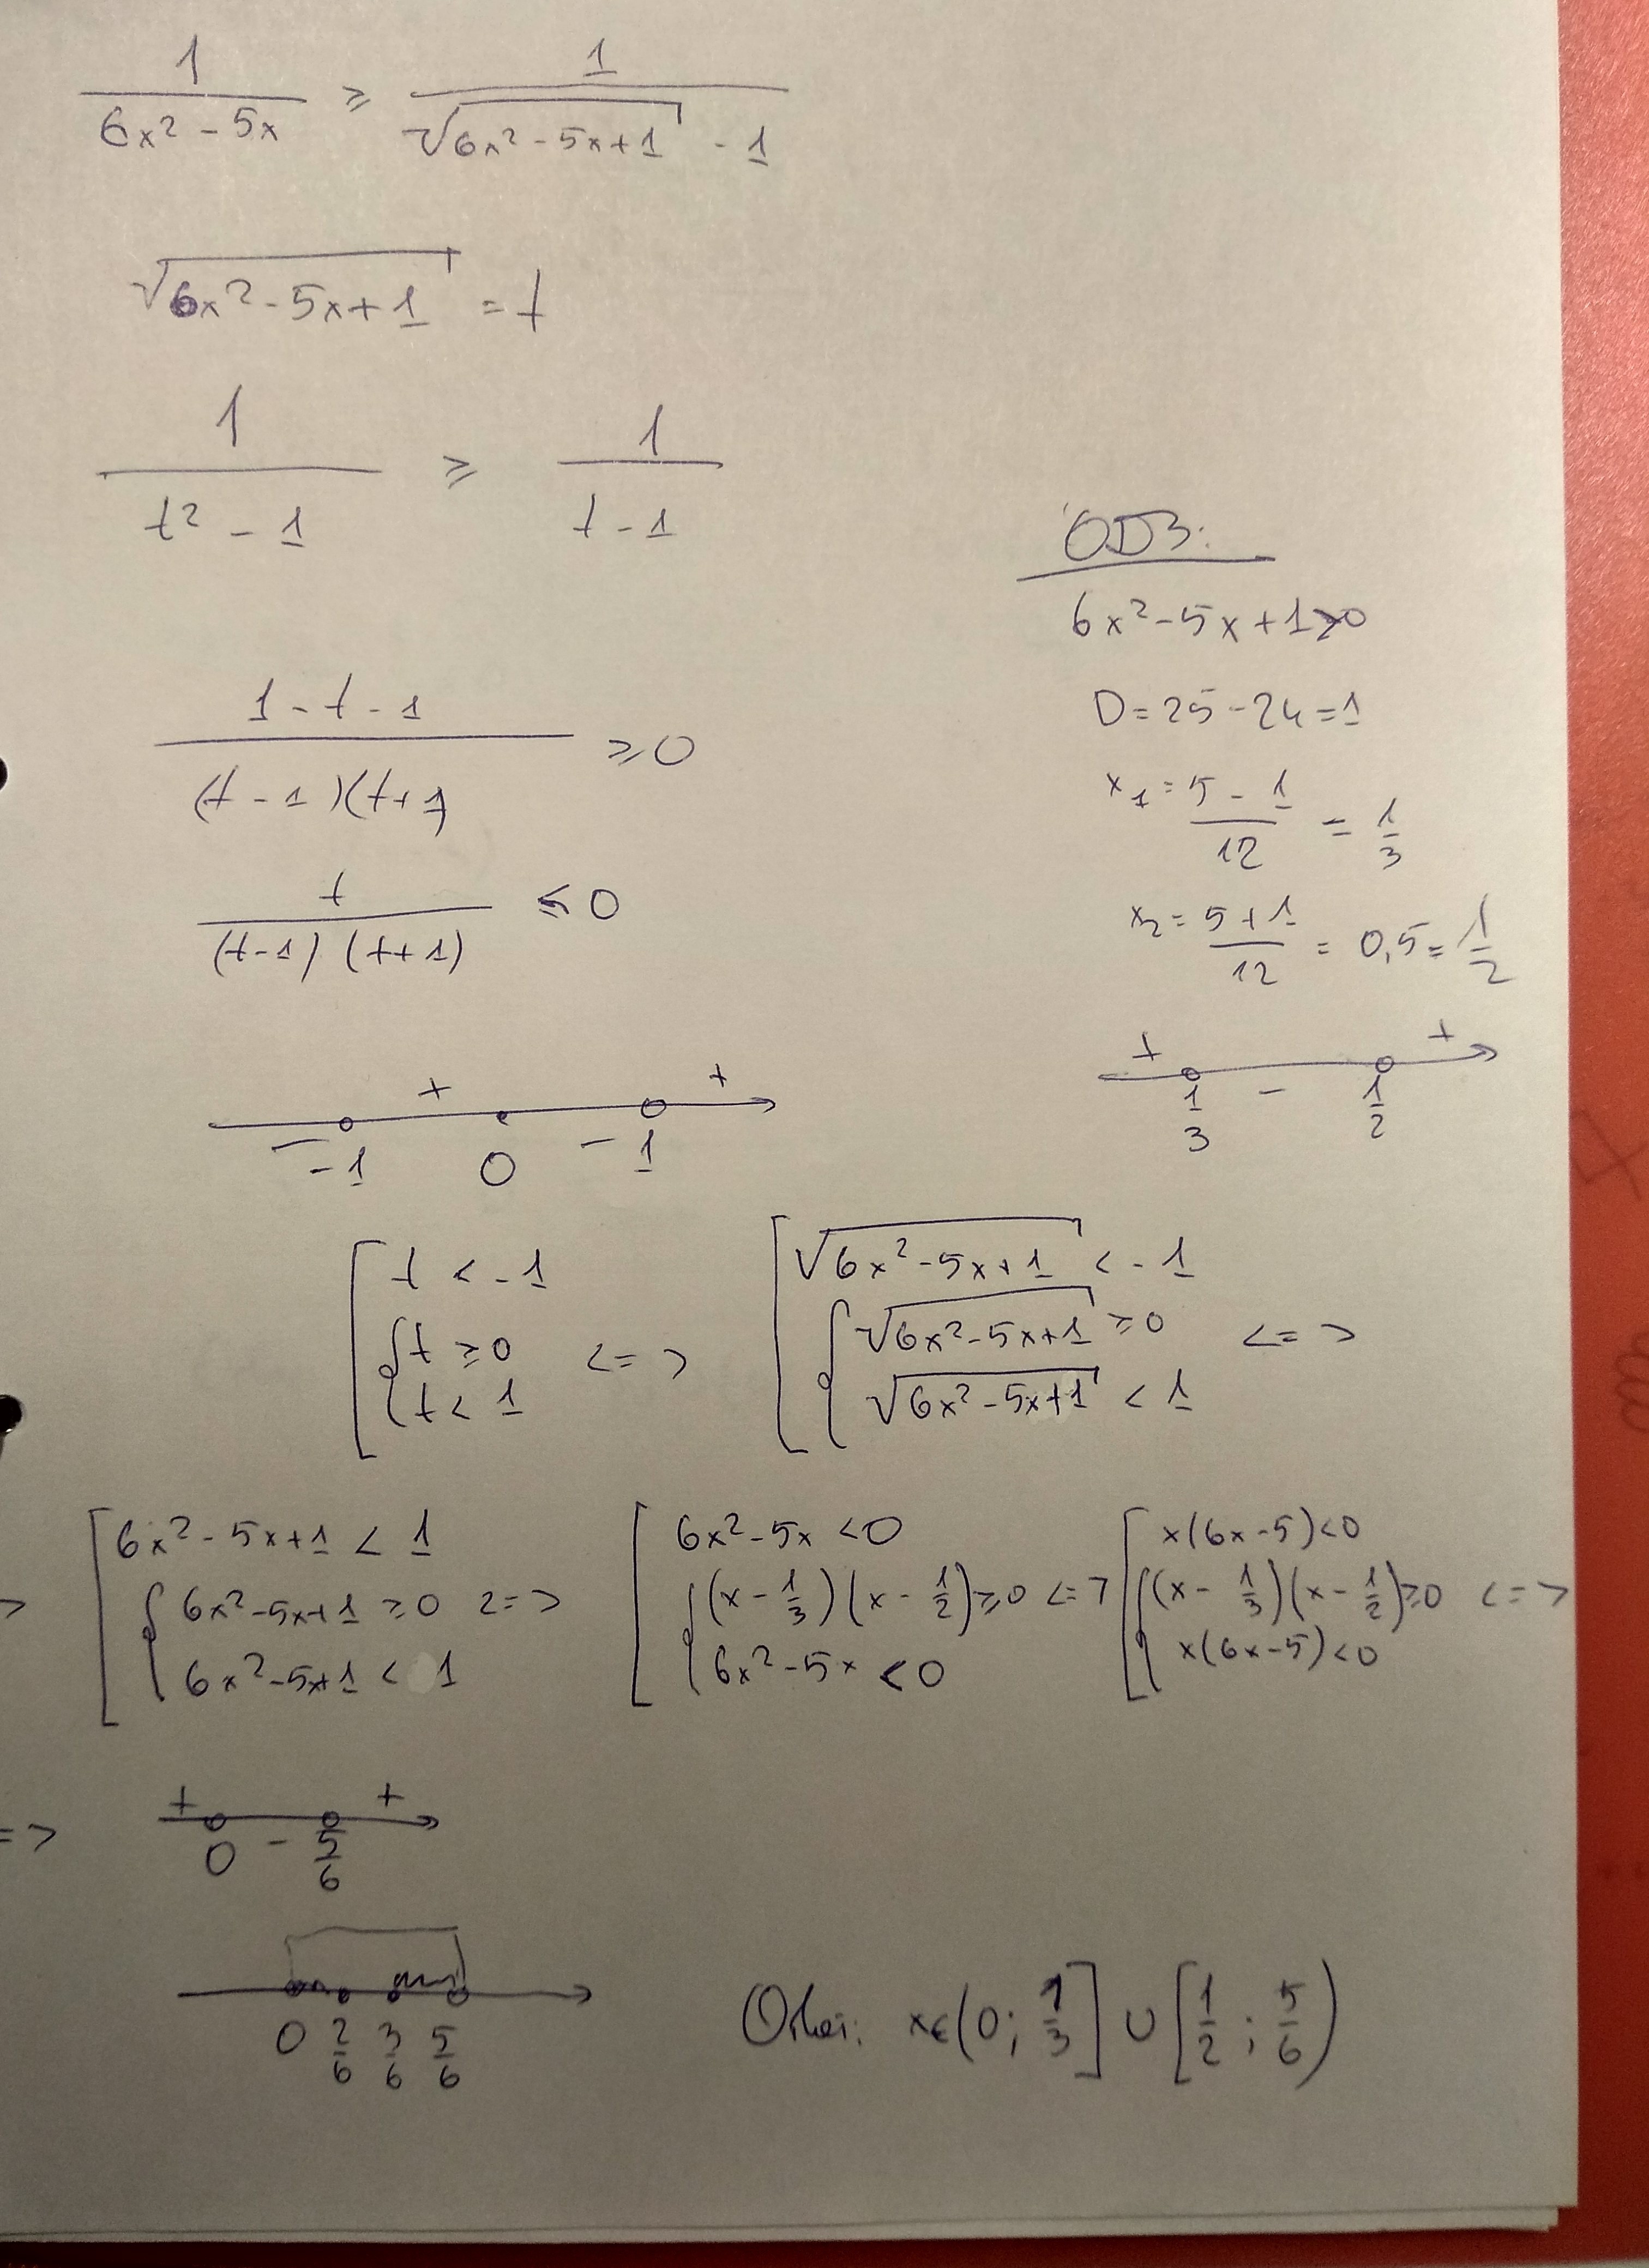 1/(6x² - 5x) ≥ 1/(√(6x² - 5x + 1) - 1)
√(6x² - 5x + 1) = t
1/(t² - 1) ≥ 1/(t - 1)
(1 - t - 1)/((t - 1)(t + 1) ≥ 0
t/((t - 1)(t + 1)) ≤ 0
- -1 + 0 - 1 +
ОДЗ:
6x² - 5x + 1 ≥ 0
D = 25 - 24 = 1
x₁ = (5 - 1)/12 = 1/3
x₂ = (5 + 1)/12 = 0,5 = 1/2
+ 1/3 - 1/2 +
[ t < -1 { t ≥ 0 t < 1 <=> [ √(6x² - 5x + 1) < -1 { √(6x² - 5x + 1) ≥ 0 √(6x² - 5x + 1) < 1 <=>
=> [ 6x² - 5x + 1 < 1 { 6x² - 5x + 1 ≥ 0 6x² - 5x + 1 < 1 <=> [ 6x² - 5x < 0 { (x - 1/3)(x - 1/2) ≥ 0 6x² - 5x < 0 <=> [ x(6x - 5) < 0 { (x - 1/3)(x - 1/2) ≥ 0 x(6x - 5) < 0 <=>
=> + 0 - 5/6 +
0 2/6 3/6 5/6
Ответ: x ∈ (0; 1/3] ∪ [1/2; 5/6)